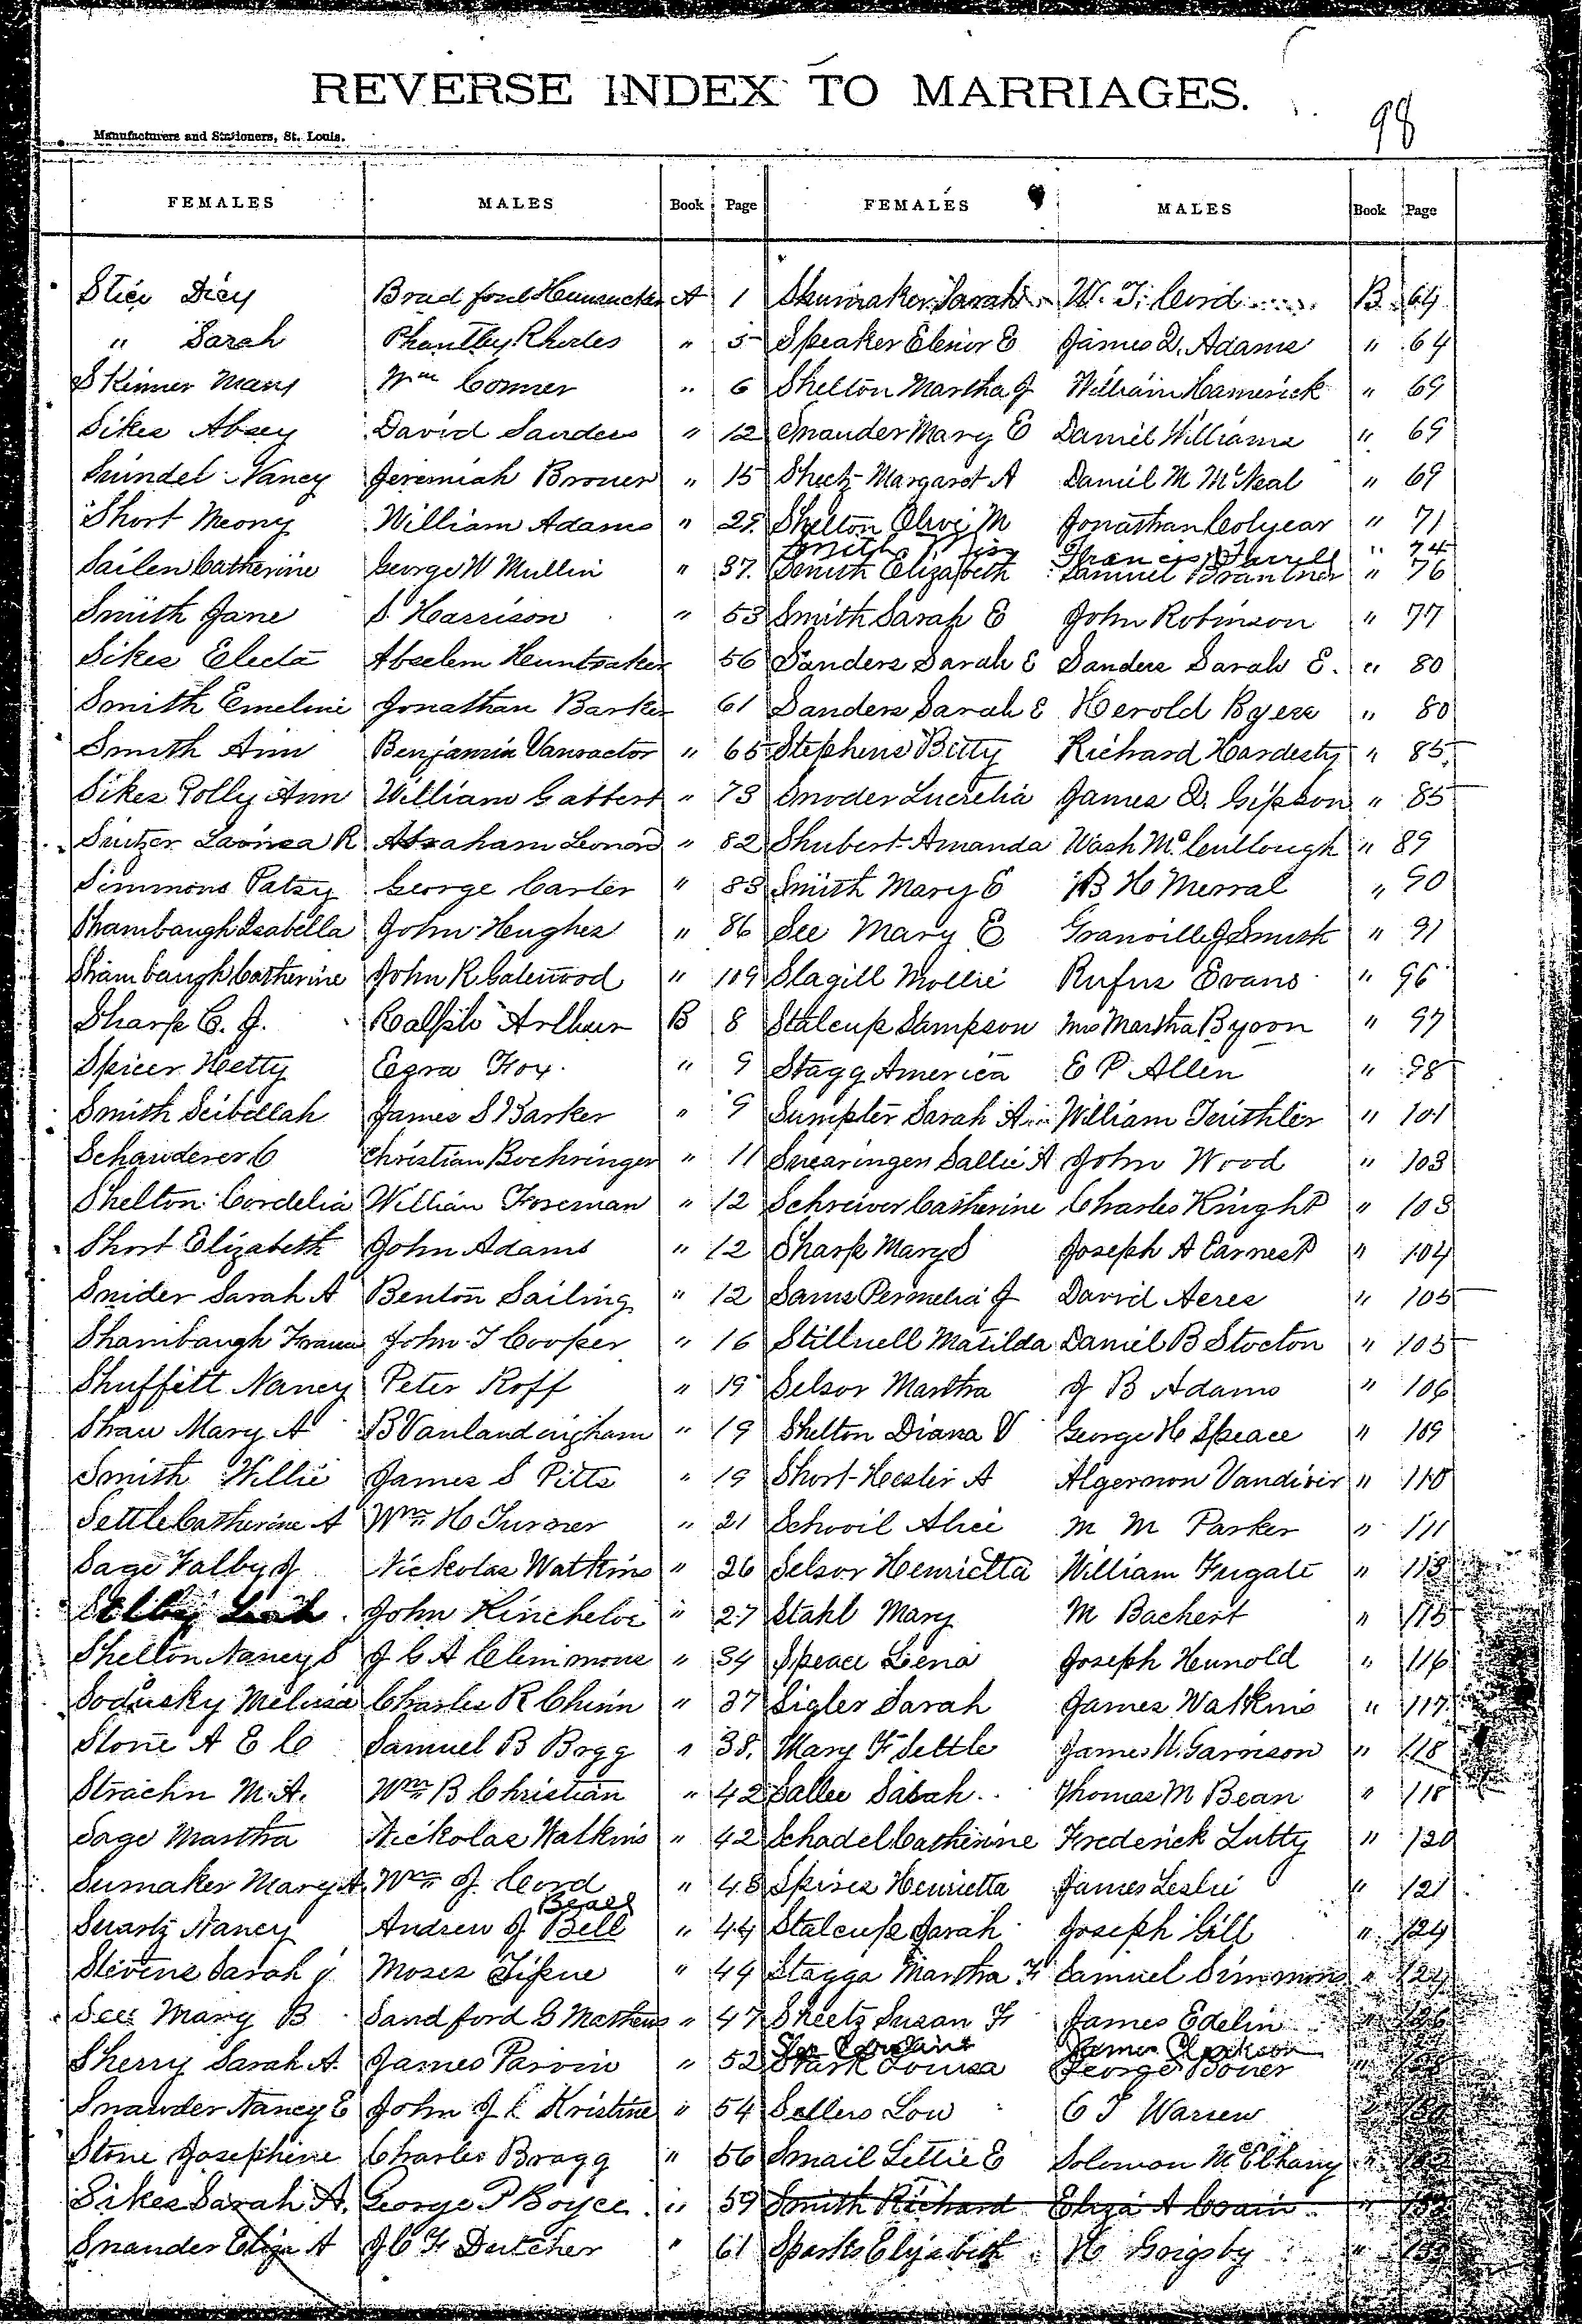 REVERSE INDEX TO MARRIAGES.
98
Manufacturers and Stationers, St. Louis.
FEMALES MALES Book Page FEMALES MALES Book Page
Dicy A 1 Sarah W. T. B 64
" Sarah Rhodes " 5 Speaker Elenor E James Q. Adams " 64
Skinner Mary Wm Conner " 6 Shelton Martha J William Hamerick " 69
Sikes Absey David Sanders " 12 Snauder Mary E Daniel Williams " 69
Nancy Jeremiah Brower " 15 Sheetz Margaret A Daniel M McNeal " 69
Short William Adams " 29 Shelton Olive M Jonathan Colyear " 71
Smith Francis " 74
Sailen Catherine George W Mullin " 37. Smith Elizabeth Samuel Brantner " 76
Smith Jane S. Harrison " 53 Smith Sarah E John Robinson " 77
Sikes Electa Abselem Huntsaker 56 Sanders Sarah E Sanders Sarah E. " 80
Smith Emeline Jonathan Barker 61 Sanders Sarah E Herold Byers " 80
Smith Ann Benjamin Vansactor " 65 Stephens Bitty Richard Hardesty " 85
Sikes Polly Ann William Gabbert " 73 Snoder Lucretia James Q. Gipson " 85
R Abraham Leonard " 82 Shubert Amanda Wash McCullough " 89
Simmons Patsy George Carter " 83 Smith Mary E B H Merral " 90
Shambaugh Isabella John Hughes " 86 See Mary E Granville J Smith " 91
Shambaugh Catherine John R Galewood " 109 Slagill Mollie Rufus Evans " 96
Sharp C. J. Ralph Arthur B 8 Stalcup Stampson Mrs Martha " 97
Spicer Hetty Ezra Fox. " 9 Stagg America E P Allen " 98
Smith Seibellah James S Barker " 9 Sumpter Sarah Ann William " 101
Schawderer C Christian Boehringer " 11 Swearingen Sallie A John Wood " 103
Shelton Cordelia William Foreman " 12 Schreiver Catherine Charles Knight " 103
Short Elizabeth John Adams " 12 Sharp Mary S Joseph A Earnest " 104
Snider Sarah A Benton Sailing " 12 Sams Permelia J David Acres " 105
Shambaugh John T Cooper " 16 Stillwell Matilda Daniel B Stocton " 105
Shuffitt Nancy Peter Roff " 19 Selsor Martha J B Adams " 106
Shaw Mary A B Vanlandingham " 19 Shelton Diana V George H Speace " 109
Smith Willie James S Pitts " 19 Short Hester A Algernon Vandivir " 110
Settle Catherine A Wm H Turner " 21 Schooil Alice M M Parker " 111
Sage J Nickolas Watkins " 26 Selsor Henrietta William Fugate " 113
Selby John Kincheloe " 27 Stahl Mary M Bachert " 115
Shelton Nancy S J C A Clemmons " 34 Speace Lena Joseph Hunold " 116
Sodusky Melissa Charles R Chinn " 37 Sigler Sarah James Watkins " 117
Stone A E C Samuel B Bogg " 38. Mary F Settle James W. Garrison " 118
Strachn M. A. Wm B Christian " 42 Sallee Sarah Thomas M Bean " 118
Sage Martha Nickolas Watkins " 42 Schadel Catherine Frederick Lutty " 120
Sumaker Mary A Wm J. Cord " 43 Spires Henrietta James Leslie " 121
Beall
Swartz Nancy Andrew J Bell " 44 Stalcup Sarah Joseph Gill " 124
Stevens Sarah J Moses Tipue " 44 Stagga Martha F Samuel Simmons " 124
See Mary B Sandford G Mathews " 47 Sheetz Susan F James Edelin " 126
James Clarkson
Sherry Sarah A. James Parvin " 52 Stark Louisa George Boner "
Snawder Nancy E John J Kristine " 54 Sellers Lou C T Warren "
Stone Josephine Charles Bragg " 56 Smail Lettie E Solomon McElhany "
Sikes Sarah A. George P Boyce " 59 Smith Richard Eliza A Crain "
Snander Eliza A J C F Dutcher " 61 Sparks Elizabeth H Grigsby "